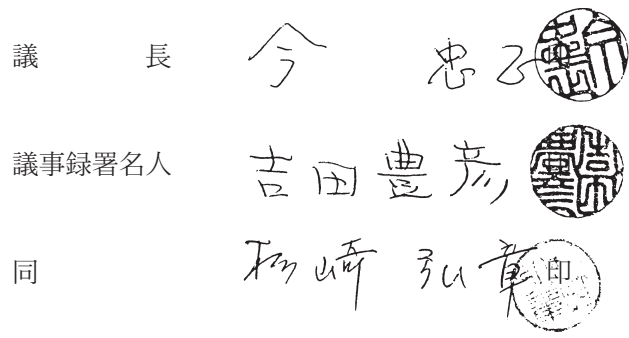 議長 今 忠乙
議事録署名人 吉田豊彦
同 杉崎 弘章 印